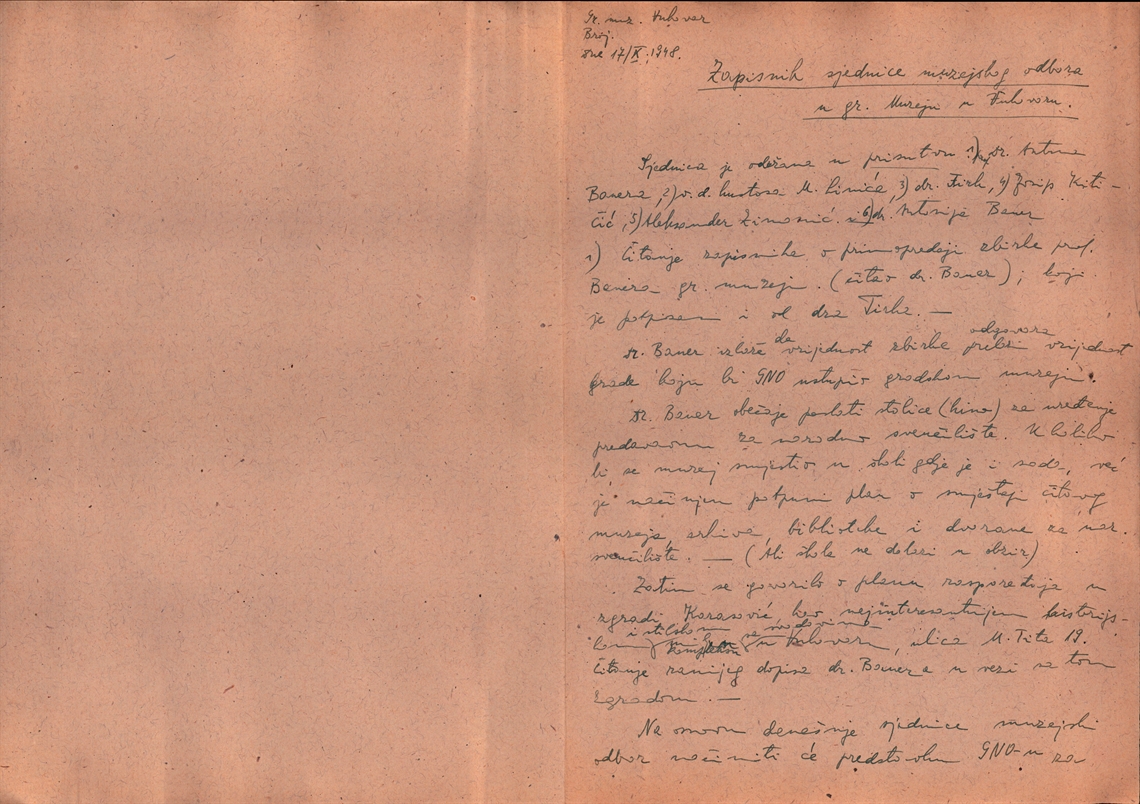 Gr. muz. Vukovar
Broj.
dne 17/X. 1948.
Zapisnik sjednice muzejskog odbora
u gr. Muzeju u Vukovaru.
Sjednica je održana u prisutvu 1) dr. Antuna
Bauera, 2) v. d. kustosa M. Linića, 3) dr. Tirk, 4) Josip Kiti-
čić, 5) Aleksander Zimonić. i 6) dr. Antonija Bauer
1) Čitanje zapisnika o primopredaji zbirke prof.
Bauera gr. muzeju. (čitao dr. Bauer), koji
je potpisan i od dra Tirka. —
dr. Bauer izlaže da vrijednost zbirke odgovara vrijednost
građe koju bi GNO ustupio gradskom muzeju.
Dr. Bauer obećaje poslati stolice (kino) za uređenje
predavaonu za narodno sveučilište. Ukoliko
bi se muzej smjestio u školi gdje je i sada, već
je načinjen potpuni plan o smještaju čitavog
muzeja, arhiva, biblioteke i dvorane za nar.
sveučilište. — (Ali škola ne dolazi u obzir)
Zatim se govorilo o planu rasporedaja u
zgradi Karasović kao najinteresantnijem historijs-
kom i stilskom sa svodovima u Vukovaru, ulica M. Tita 19.
Čitanje ranijeg dopisa dr. Bauera u vezi sa tom
zgradom. —
Na osnovu današnje sjednice muzejski
odbor načiniti će predstavku GNO-u za